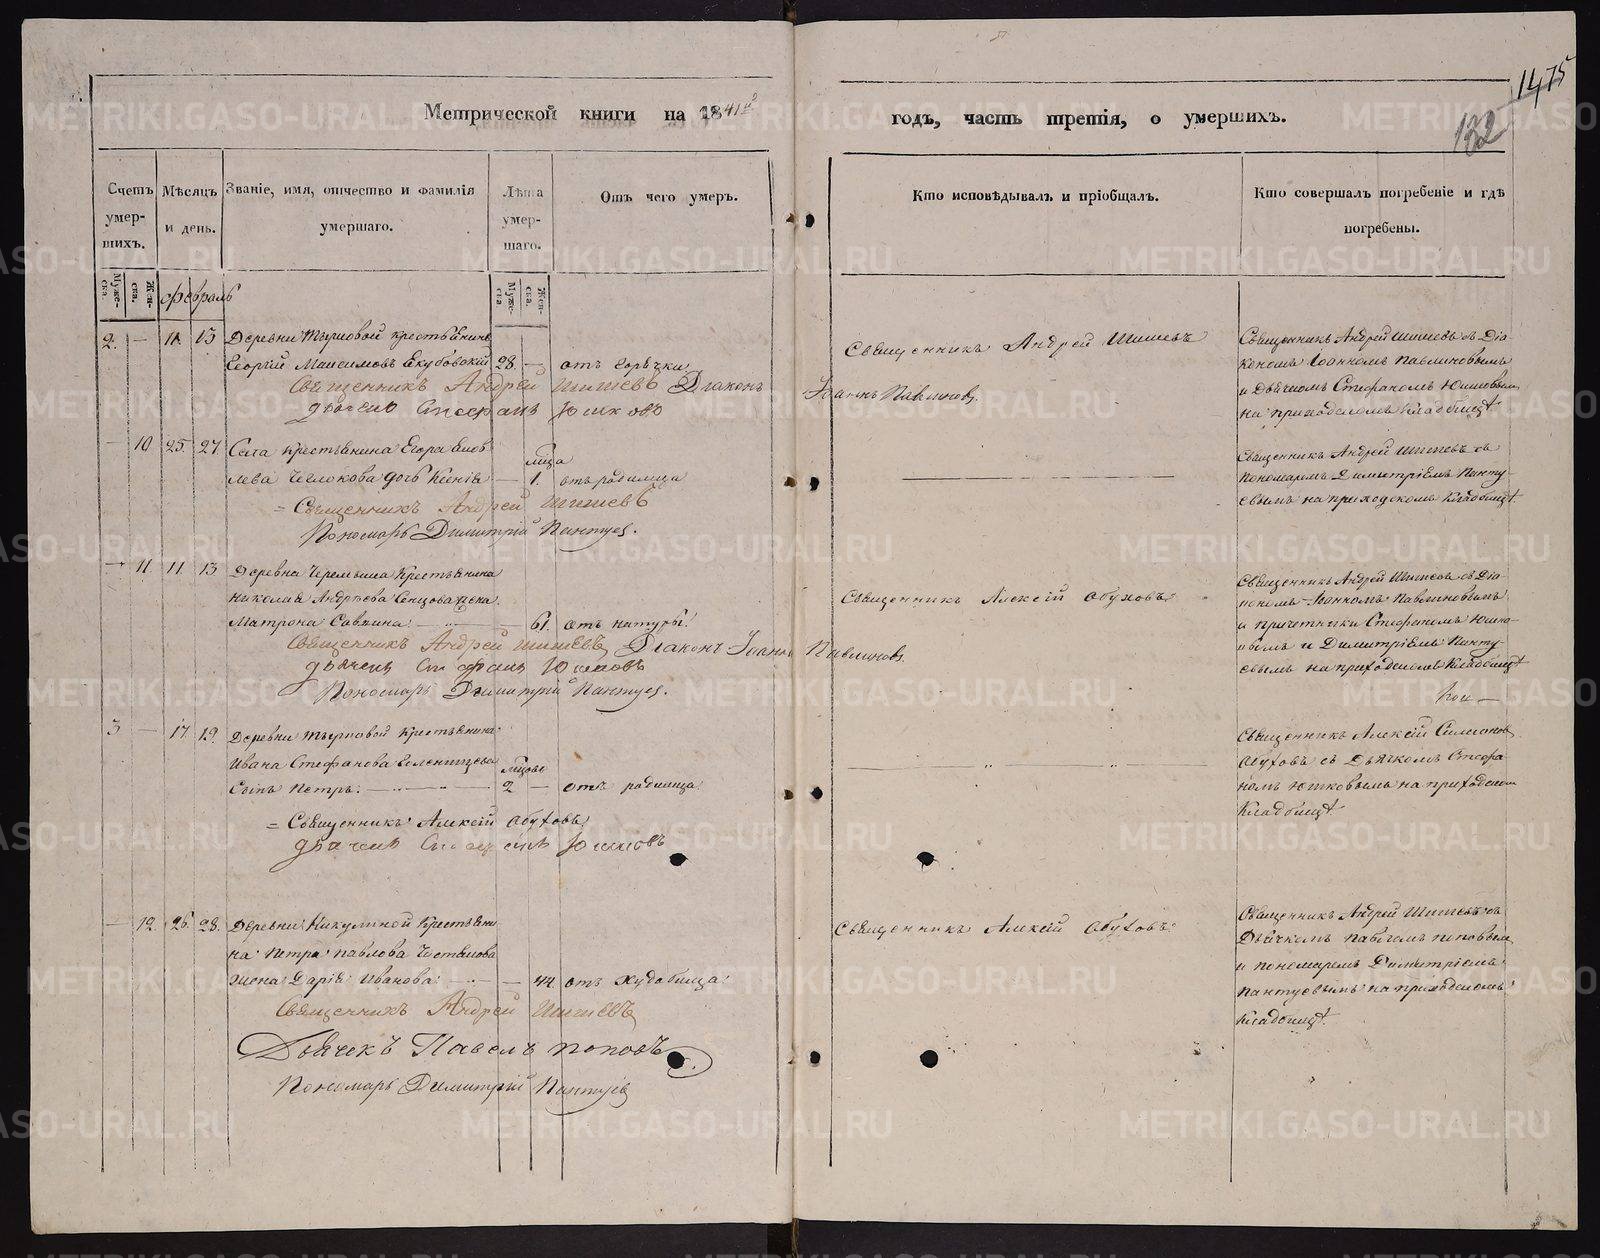 Метрической книги на 1841й
годъ, часть третія, о умершихъ.
1475
132
Счетъ умер-шихъ.
Мѣсяцъ и день.
Званіе, имя, отчество и фамилія умершаго.
Лѣта умер-шаго.
Отъ чего умеръ.
Кто исповѣдывалъ и пріобщалъ.
Кто совершалъ погребеніе и гдѣ погребены.
Муже-ска.
Жен-ска.
Февраль
Муже-ска
Жен-ска.
2. — 11 13 Деревни крестьянинъ
Георгій Максимовъ Якубовскій 28. — отъ горѣчки
Священникъ Андрей Шишевъ Діаконъ Іоаннъ Павлиновъ.
дьячекъ Стефанъ Юшковъ
Священникъ Андрей Шишевъ
Священникъ Андрей Шишевъ съ Діа-
кономъ Іоанномъ Павлиновымъ
и Дьячкомъ Стефаномъ Юшковымъ
на приходскомъ кладбищѣ
— 10 25. 27 Села крестьянина Егора
дочь Ксенія — 1. отъ родимца
= Священникъ Андрей Шишевъ
Пономарь Димитрій Пантуев.
Священникъ Андрей Шишевъ съ
пономаремъ Димитріемъ Панту-
евымъ на приходскомъ кладбищѣ
— 11. 11. 13 Деревни Черемыша крестьянина
Николая Андреева Сенцова жена
Матрона Саввина — 61. отъ натуры
Священникъ Андрей Шишевъ Діаконъ Іоаннъ Павлиновъ.
дьячекъ Стефанъ Юшковъ
Пономарь Димитрій Пантуев.
Священникъ Алексій Обуховъ
Священникъ Андрей Шишевъ съ Діа-
кономъ Іоанномъ Павлиновымъ
и причетники Стефаномъ Юшко-
вымъ и Димитріемъ Панту-
евымъ на приходскомъ кладбищѣ
3 — 17. 19. Деревни крестьянина
Ивана Стефанова
Сынъ Петръ. — 2 — отъ родимца
= Священникъ Алексій Обуховъ
дьячекъ Стефанъ Юшковъ
Священникъ Алексій Симеоновъ
Обуховъ съ Дьячкомъ Стефа-
номъ Юшковымъ на приходскомъ
кладбищѣ
— 12. 26. 28. Деревни Никулиной крестьяни
на Петра Павлова
жена Дарія Иванова — 44. отъ худобища
Священникъ Андрей Шишевъ
Дьячекъ Павелъ Поповъ
Пономарь Димитрій Пантуев
Священникъ Алексій Обуховъ
Священникъ Андрей Шишевъ съ
Дьячкомъ Павломъ Поповымъ
и пономаремъ Димитріемъ
Пантуевымъ на приходскомъ
кладбищѣ.
METRIKI.GASO-URAL.RU